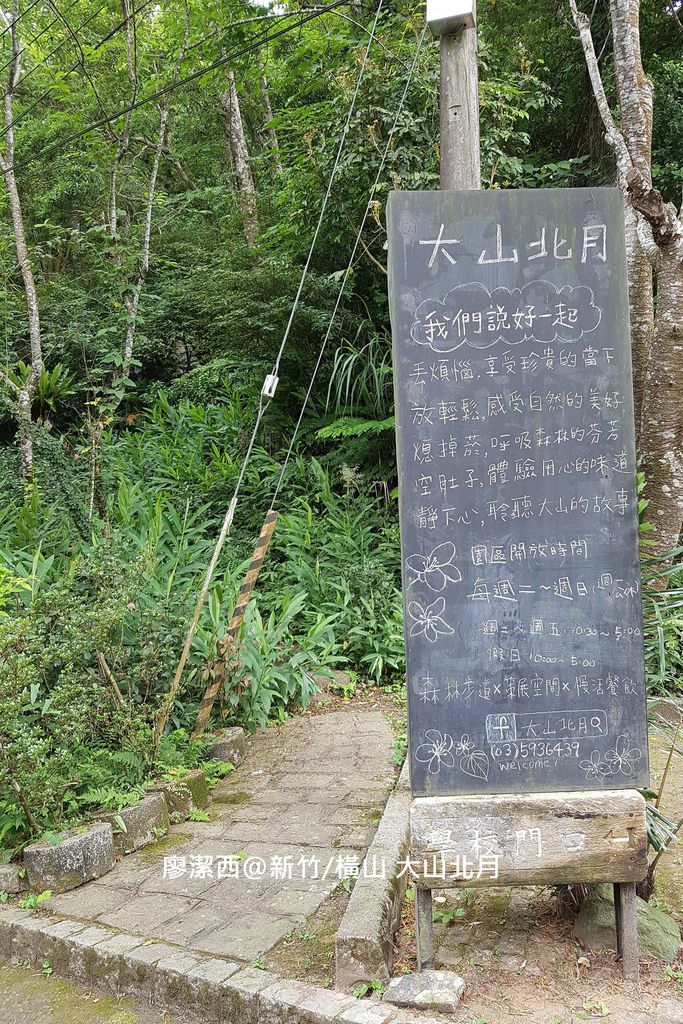 大山北月
我們說好一起
丟煩惱,享受珍貴的當下
放輕鬆,感受自然的美好
熄掉菸,呼吸森林的芬芳
空肚子,體驗用心的味道
靜下心,聆聽大山的故事
園區開放時間
每週二~週日 週一公休
週二~週五:10:30~5:00
假日 10:00~5:00
森林步道×策展空間×慢活餐飲
f 大山北月
(03)5936439
welcome!
學校門口
廖潔西@新竹/橫山 大山北月